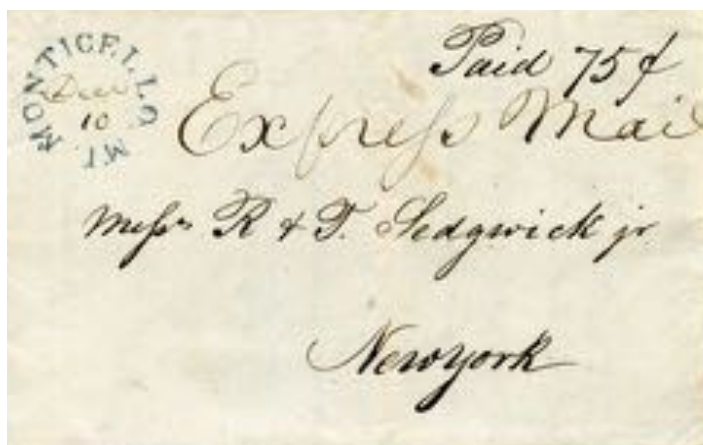 MONTICELLO MI.
Decr
10
Paid 75¢
Express Mail
Messrs R & T. Sedgwick jr
Newyork